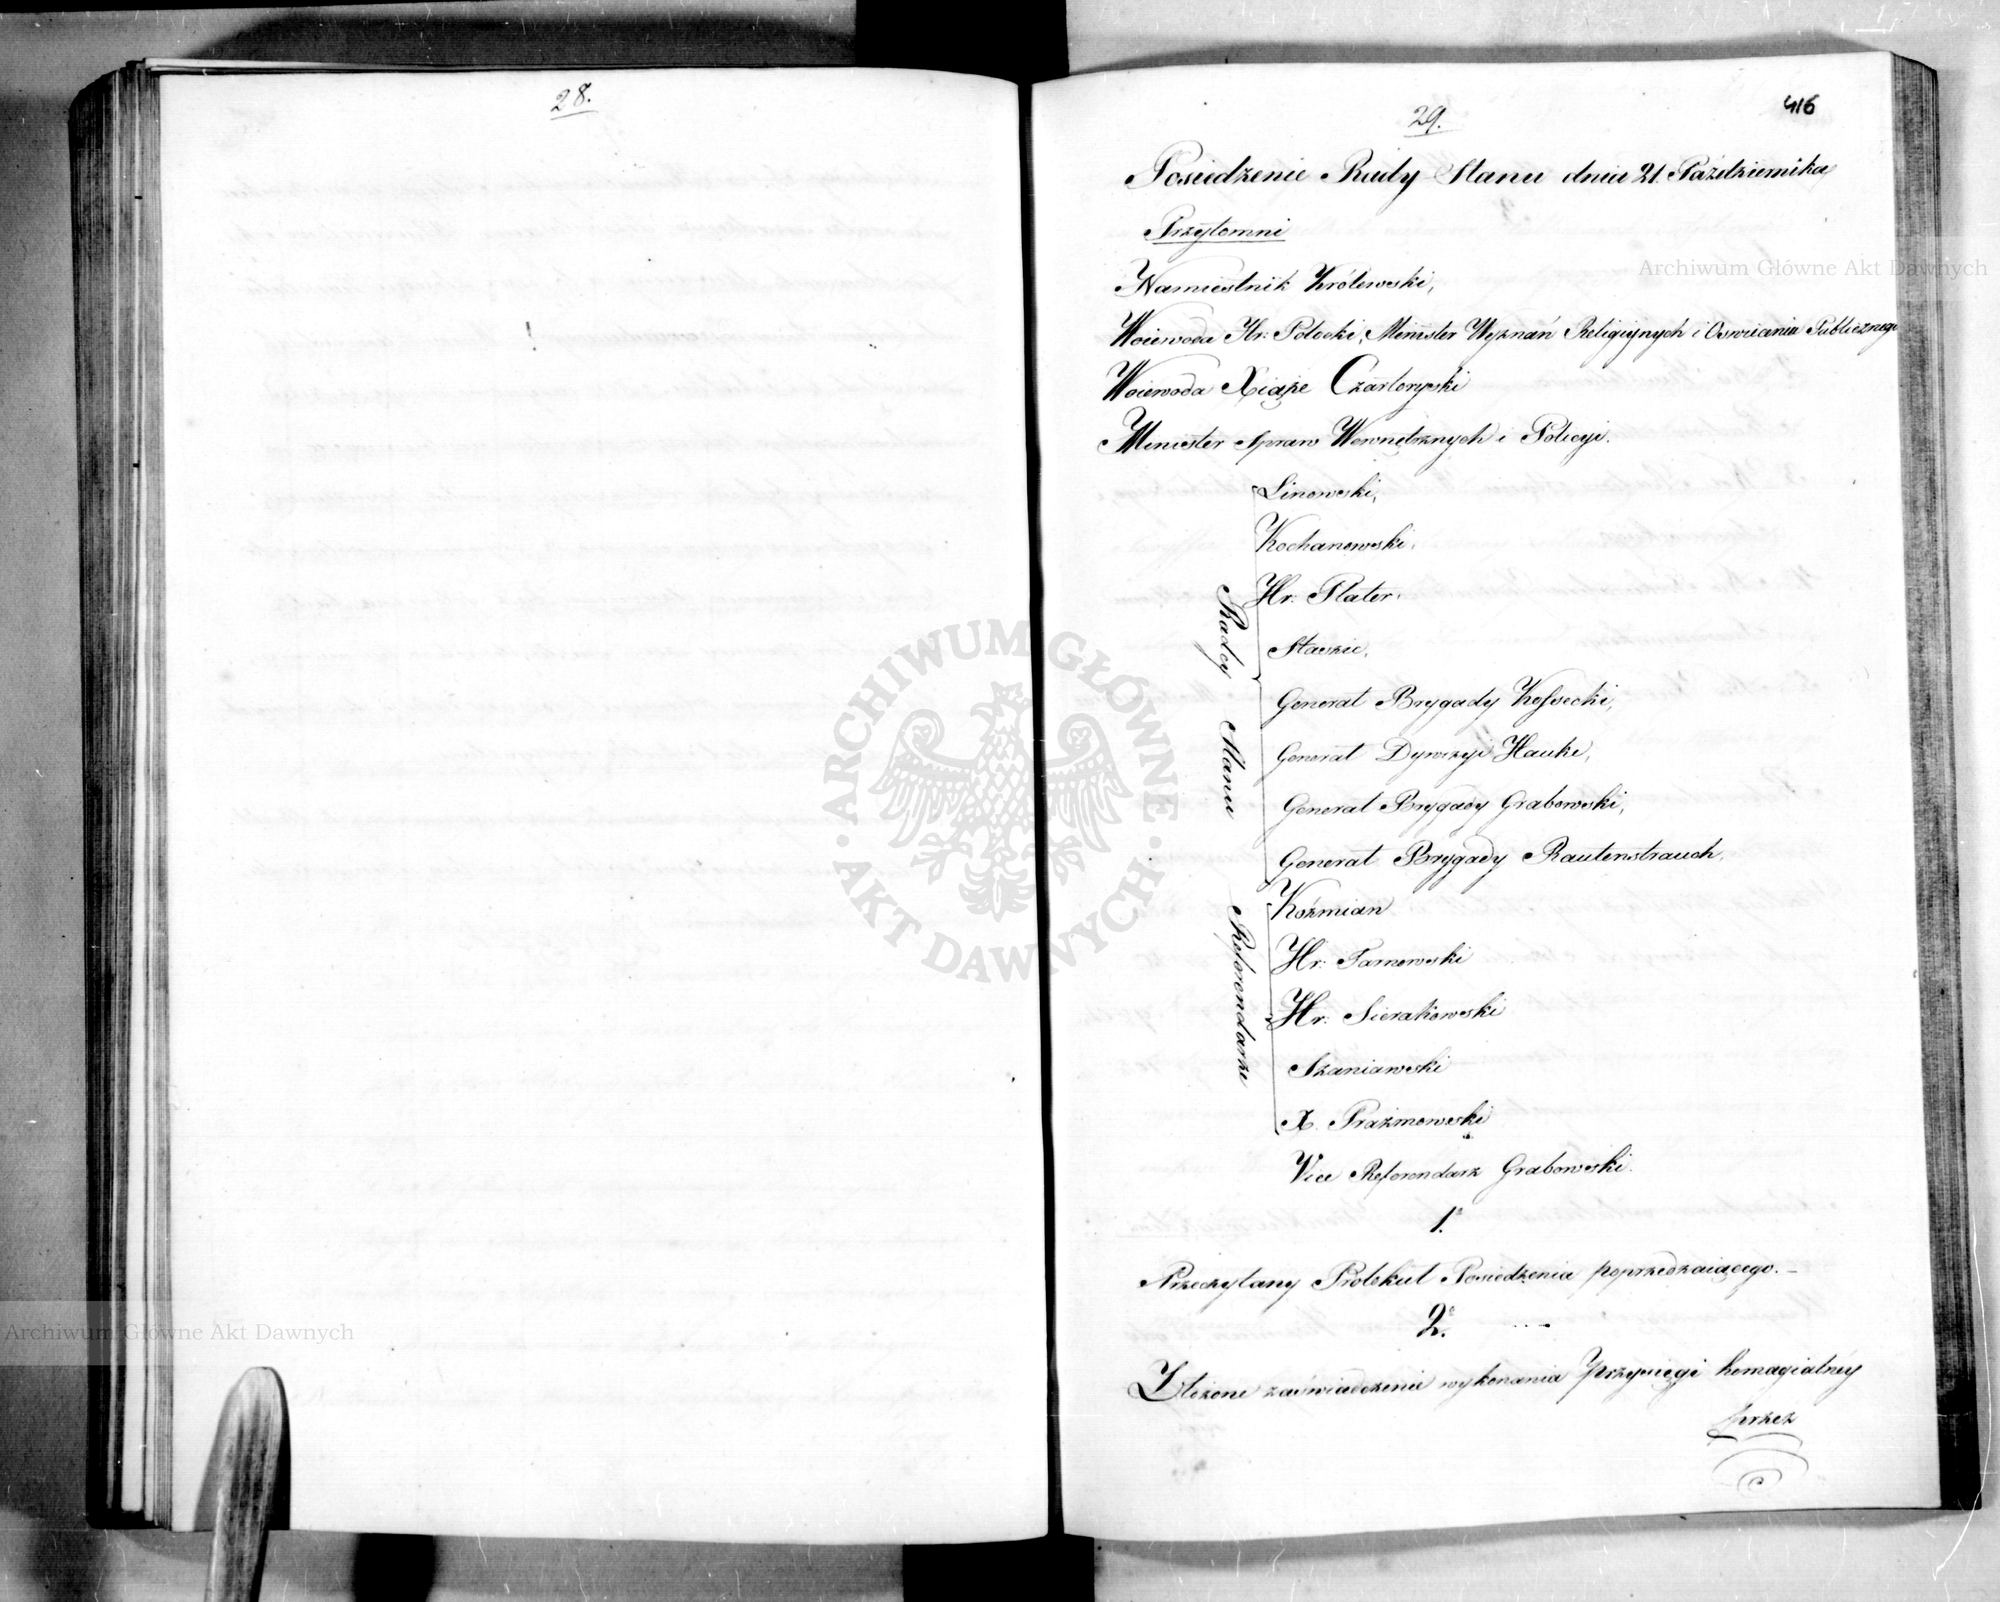 28.
29.
416
Posiedzenie Rady Stanu dnia 21. Października
Przytomni
Namiestnik Królewski,
Woiewoda Hr: Potocki, Minister Wyznań Religiynych i Oswiecenia Publicznego
Woiewoda Xiąże Czartoryski
Minister Spraw Wewnętrznych i Policyi.
Radcy Stanu
Linowski,
Kochanowski,
Hr: Plater,
Staszic,
Generał Brygady Kossecki,
Generał Dywizyi Hauke,
Generał Brygady Grabowski,
Generał Brygady Rautenstrauch,
Referendarze
Koźmian
Hr: Tarnowski
Hr: Sierakowski
Szaniawski
X. Prażmowski
Vice Referendarz Grabowski.
1.
Przeczytany Protokuł Posiedzenia poprzedzaiącego.
2.
Złożone zaświadczenia wykonania Przysięgi homagialnéy
przez
Archiwum Główne Akt Dawnych
ARCHIWUM GŁÓWNE · AKT DAWNYCH ·
Archiwum Główne Akt Dawnych